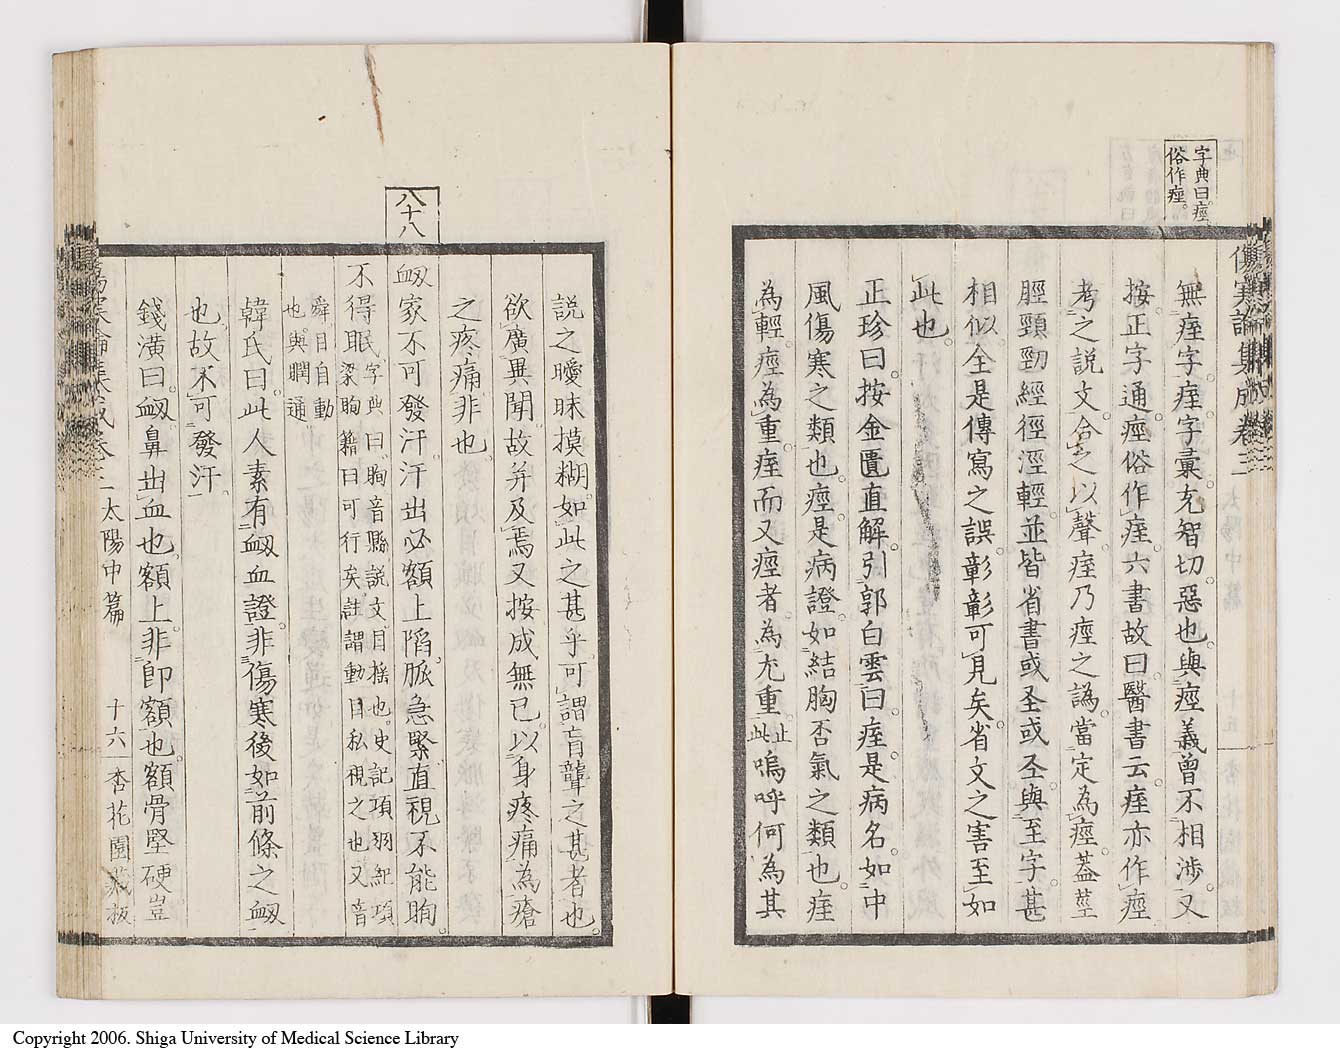 字典曰。痙
俗作痓。
傷寒論集成卷三
無痓字。痓字彙。充智切。惡也。與痙義曾不相涉。又
按正字通。痙俗作痓。六書故曰。醫書云。痓亦作痙。
考之說文。合之以聲。痓乃痙之譌。當定為痙。蓋莖
脛頸勁經徑涇輕。並皆省書。或圣或圣。與至字甚
相似。全是傳寫之誤。彰彰可見矣。省文之害。至如
此也。
正珍曰。按金匱直解引郭白雲曰。痓是病名。如中
風傷寒之類也。痙是病證。如結胸否氣之類也。痓
為輕。痙為重。痓而又痙者。為尤重。止此嗚呼何為其
說之曖昧摸糊。如此之甚乎。可謂盲聾之甚者也。
欲廣異聞。故并及焉。又按成無已。以身疼痛為瘡
之疼痛。非也。
八十八
衂家不可發汗。汗出必額上陷。脈急緊。直視不能眴。
不得眠。字典曰。眴音縣。說文目搖也。史記項羽紀。項
梁眴籍曰。可行矣。註謂動目私視之也。又音
舜。目自動
也。與瞤通
韓氏曰。此人素有衂血證。非傷寒後如前條之衂
也。故不可發汗。
錢潢曰。衂。鼻出血也。額上非即額也。額骨堅硬。豈
傷寒論集成卷三 太陽中篇 十六 杏花園藏板